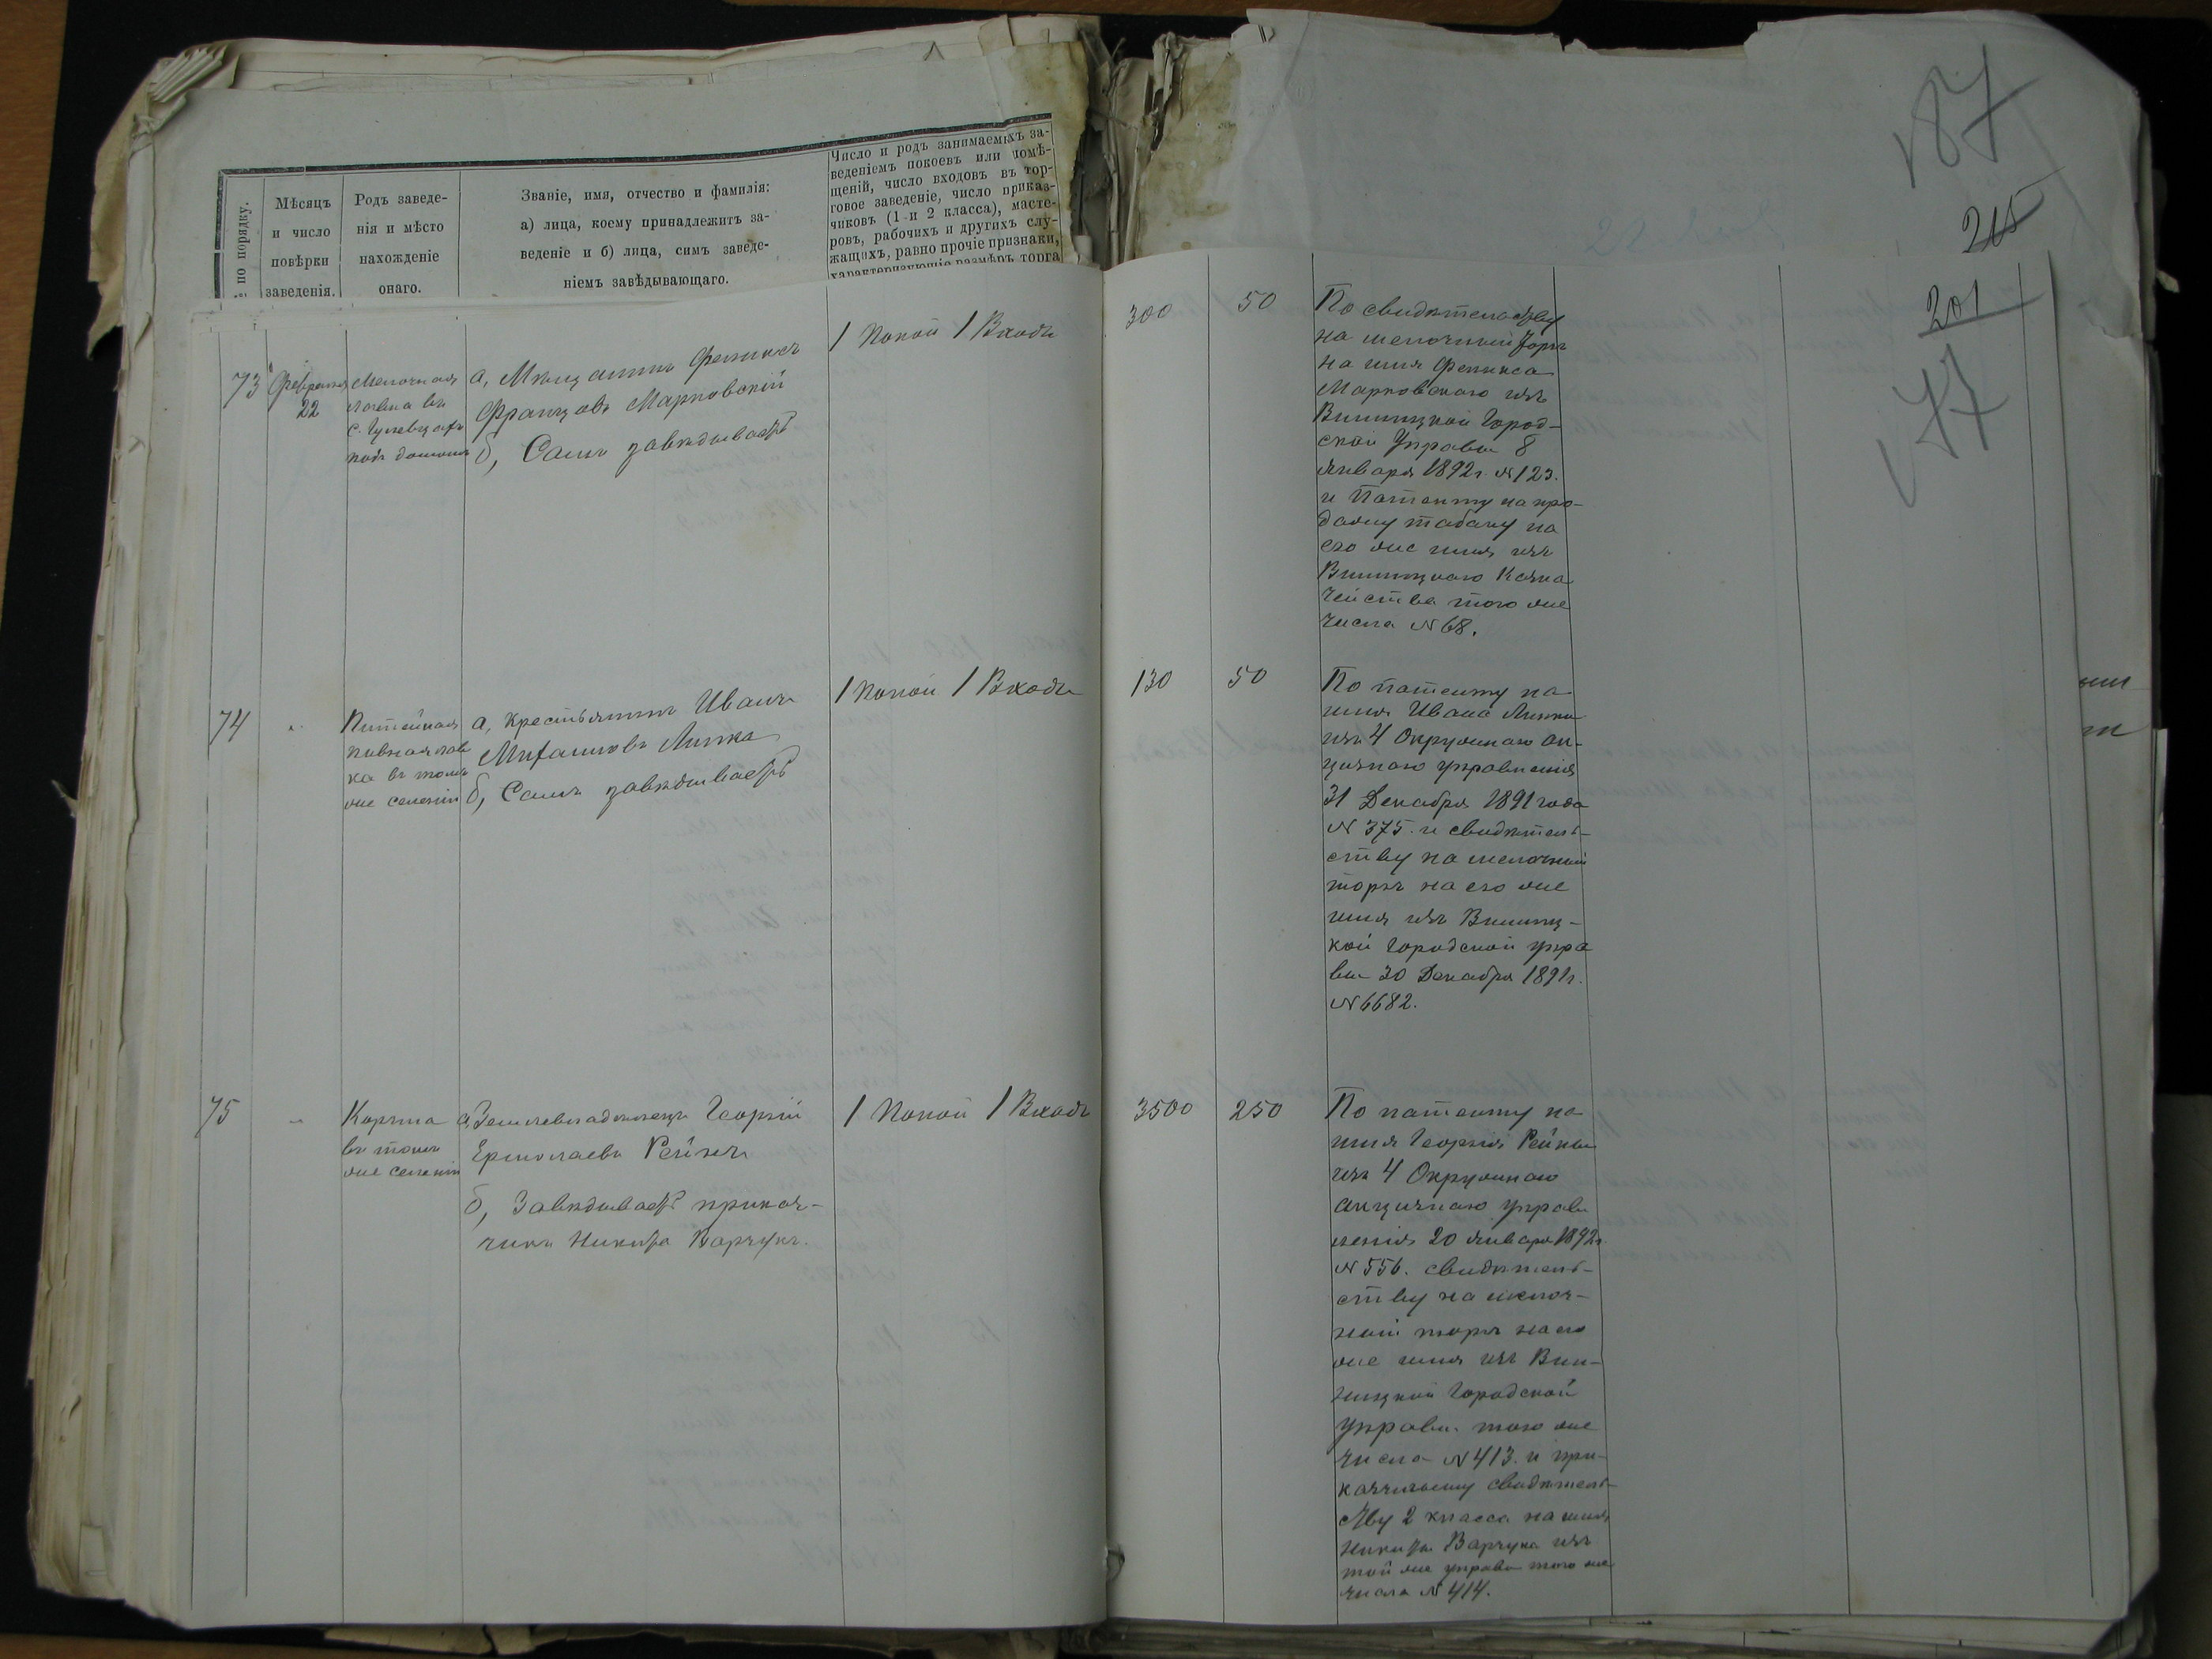 № по порядку.
Мѣсяцъ
и число
повѣрки
заведенія.
Родъ заведе-
нія и мѣсто
нахожденіе
онаго.
Званіе, имя, отчество и фамилія:
а) лица, коему принадлежитъ за-
веденіе и б) лица, симъ заведе-
ніемъ завѣдывающаго.
Число и родъ занимаемыхъ за-
веденіемъ покоевъ или помѣ-
щеній, число входовъ въ тор-
говое заведеніе, число приказ-
чиковъ (1 и 2 класса), масте-
ровъ, рабочихъ и другихъ слу-
жащихъ, равно прочіе признаки,
характеризующіе размѣръ торга
87
215
201
77
73
Февраля
22
Мелочная
лавка въ
с. Гулевцахъ
подъ домомъ
а, Мѣщанинъ Феликсъ
Францовъ Марковскій
б, Самъ завѣдываетъ
1 Покой 1 Входъ
300
50
По свидѣтельству
на мелочный торгъ
на имя Феликса
Марковскаго изъ
Винницкой Город-
ской Управы 8
Января 1892 г. № 123.
и Патенту на про-
дажу табаку на
его же имя изъ
Винницкаго Казна
чейства того же
числа № 68.
74
"
Питейная
пивная лав
ка въ томъ
же селеніи
а, Крестьянинъ Иванъ
Липка
б, Самъ завѣдываетъ
1 Покой 1 Входъ
130
50
По патенту на
имя Ивана Липки
изъ 4 Окружнаго Ак-
цизнаго управленія
31 Декабря 1891 года
№ 375. и свидѣтель-
ству на мелочный
торгъ на его же
имя изъ Винниц-
кой Городской упра
вы 30 Декабря 1891 г.
№ 6682.
75
"
Корчма
въ томъ
же селеніи
а, Землевладѣлецъ Георгій
Ермолаевъ Рейнъ
б, Завѣдываетъ приказ-
чикъ Никита Варчукъ.
1 Покой 1 Входъ
3500
250
По патенту на
имя Георгія Рейна
изъ 4 Окружнаго
Акцизнаго управ
ленія 20 Января 1892 г.
№ 556. свидѣтель-
ству на мелоч-
ной торгъ на его
же имя изъ Вин-
ницкой Городской
Управы того же
числа № 413. и при-
казчичьему свидѣтель-
ству 2 класса на имя
Никиты Варчука изъ
той же управы того же
числа № 414.